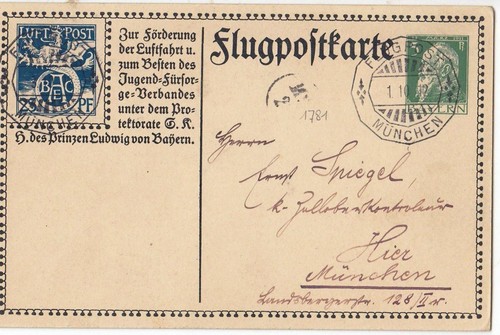 LUFT POST
BAeC
25 PF
Zur Förderung
der Luftfahrt u.
zum Besten des
Jugend-Fürsor-
ge-Verbandes
unter dem Pro-
tektorate S. K.
H. des Prinzen Ludwig von Bayern.
Flugpostkarte
BAYERN
FLUGPOST
1. 10. 12
MÜNCHEN
1781
Herrn
Ernst Spiegel,
k. Zolloberkontrolleur
Hier
München
Landsbergerstr. 128/II r.